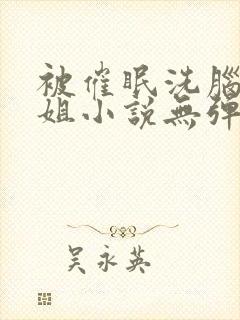 被催眠洗腦
姐小說無彈
吳永英